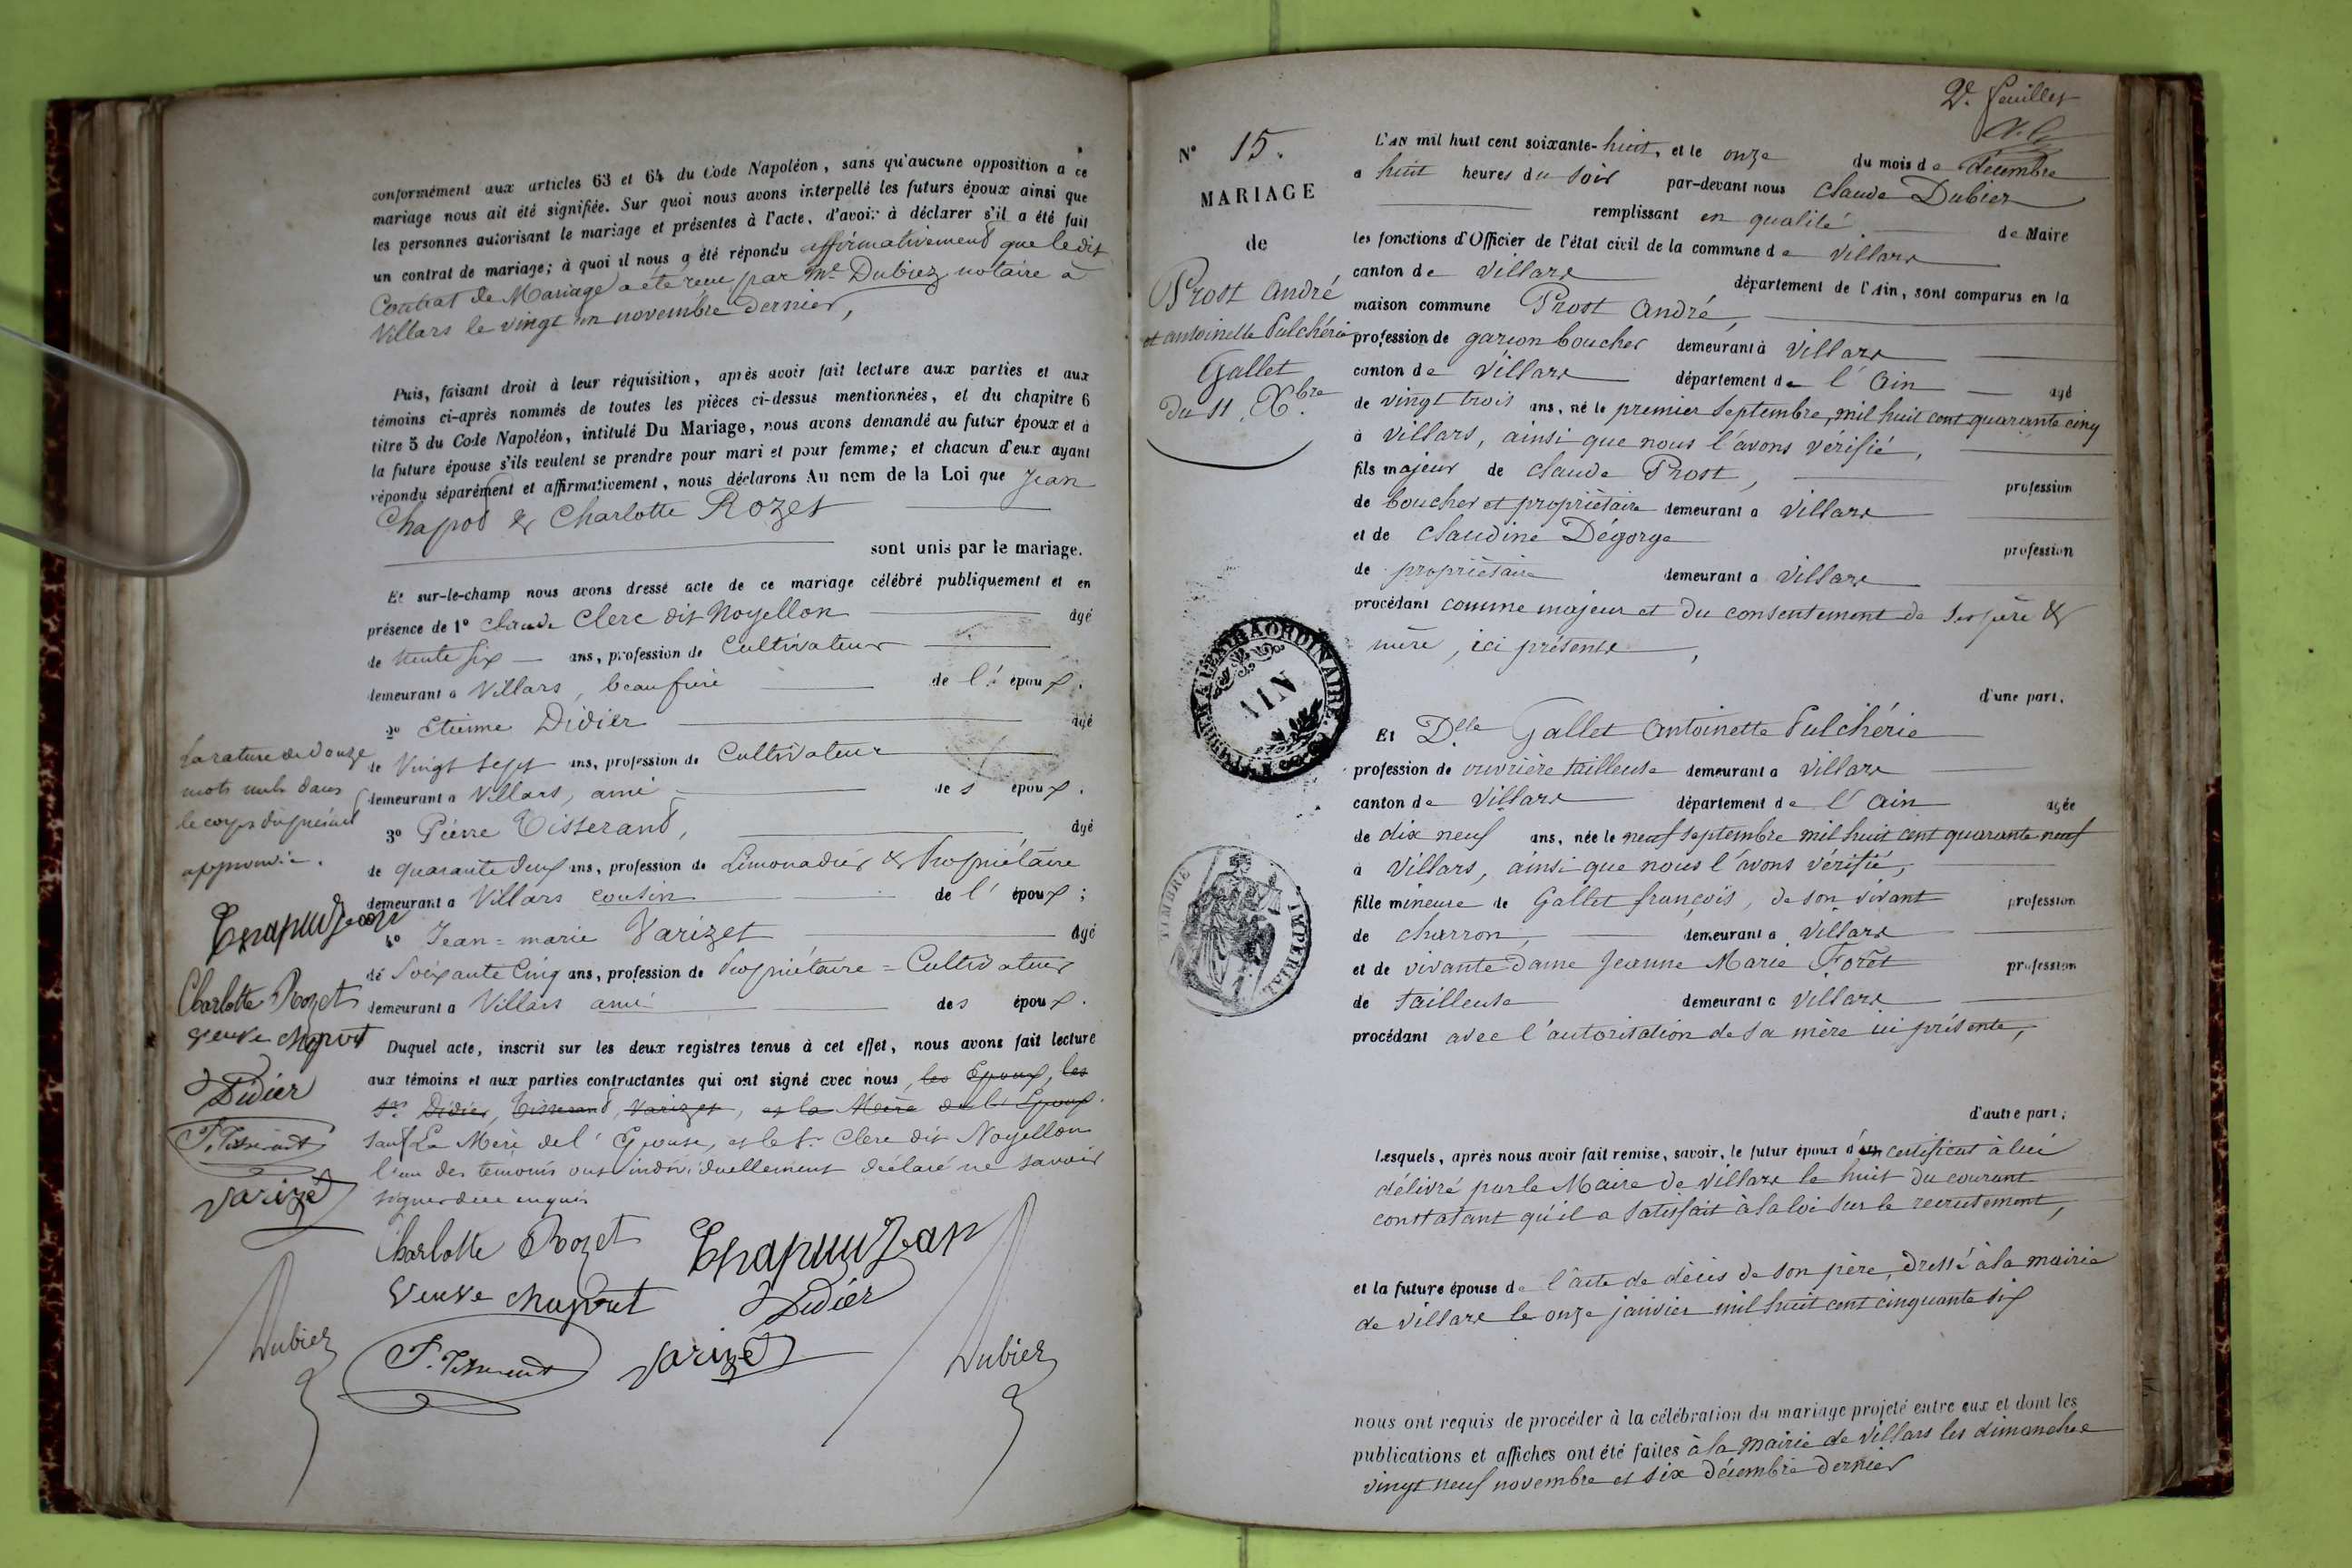 conformément aux articles 63 et 64 du Code Napoléon, sans qu'aucune opposition a ce
mariage nous ait été signifiée. Sur quoi nous avons interpellé les futurs époux ainsi que
les personnes autorisant le mariage et présentes à l'acte, d'avoir à déclarer s'il a été fait
un contrat de mariage; à quoi il nous a été répondu affirmativement que le dit
Contrat de Mariage a été reçu par Me Dubiez notaire à
Villars le vingt un novembre dernier,
Puis, faisant droit à leur réquisition, après avoir fait lecture aux parties et aux
témoins ci-après nommés de toutes les pièces ci-dessus mentionnées, et du chapitre 6
titre 5 du Code Napoléon, intitulé Du Mariage, nous avons demandé au futur époux et à
la future épouse s'ils veulent se prendre pour mari et pour femme; et chacun d'eux ayant
répondu séparément et affirmativement, nous déclarons Au nom de la Loi que Jean
Chapot & Charlotte Rozet
sont unis par le mariage.
Et sur-le-champ nous avons dressé acte de ce mariage célébré publiquement et en
présence de 1° Claude Clerc dit Noyellon âgé
de trente six ans, profession de Cultivateur
demeurant a Villars, beaufrère de l' époux.
2° Etienne Didier âgé
de Vingt sept ans, profession de Cultivateur
demeurant a Villars, ami des époux.
3° Pierre Tisserand, âgé
de quarante deux ans, profession de Limonadier & Propriétaire
demeurant a Villars cousin de l' époux;
4° Jean=marie Varizet âgé
de Soixante Cinq ans, profession de Propriétaire=Cultivateur
demeurant a Villars ami des époux.
Duquel acte, inscrit sur les deux registres tenus à cet effet, nous avons fait lecture
aux témoins et aux parties contractantes qui ont signé avec nous, les Epoux, les
srs Didier, Tisserand, Varizet, et la Mère de l'Epoux.
Sauf La Mère de l'Epouse, et le sr Clerc dit Noyellon
l'un des témoins ont individuellement déclaré ne savoir
signer de ce enquis
Charlotte Rozet Chapuy Jean
Veuve chapout Didier
P. Tisserand Varizet
Dubiez Dubiez
La rature de douze
mots nuls dans
le corps du présent
approuvée.
Chapuy Jean
Charlotte Rozet
veuve chapout
Didier
P. Tisserand
Varizet
2e. feuillet
N° 15.
MARIAGE
de
Prost André
et antoinette Pulchérie
Gallet
du 11 Xbre.
L'AN mil huit cent soixante-huit, et le onze du mois de décembre
a huit heures du soir par-devant nous Claude Dubiez
remplissant en qualité de Maire
les fonctions d'Officier de l'état civil de la commune de Villars
canton de Villars département de l'Ain, sont comparus en la
maison commune Prost André,
profession de garçon boucher demeurant à Villars
canton de Villars département de l'Ain âgé
de vingt trois ans, né le premier Septembre, mil huit cent quarante cinq
à Villars, ainsi que nous l'avons vérifié,
fils majeur de Claude Prost, profession
de boucher et propriétaire demeurant a Villars
et de Claudine Dégorge profession
de propriétaire demeurant a Villars
procédant comme majeur et du consentement de ses père &
mère, ici présents,
d'une part.
Et Dlle Gallet Antoinette Pulchérie
profession de ouvrière tailleuse demeurant a Villars
canton de Villars département de l'Ain âgée
de dix neuf ans, née le neuf septembre mil huit cent quarante neuf
a Villars, ainsi que nous l'avons vérifié,
fille mineure de Gallet françois, de son vivant profession
de charron, demeurant a Villars
et de vivante dame Jeanne Marie Forêt profession
de tailleuse demeurant a Villars
procédant avec l'autorisation de sa mère ici présente,
d'autre part;
Lesquels, après nous avoir fait remise, savoir, le futur époux d'un certificat à lui
délivré par le Maire de Villars le huit du courant
constatant qu'il a satisfait à la loi sur le recrutement,
et la future épouse de l'acte de décès de son père, dressé à la mairie
de Villars le onze janvier mil huit cent cinquante six
nous ont requis de procéder à la célébration du mariage projeté entre eux et dont les
publications et affiches ont été faites à la mairie de Villars les dimanches
vingt neuf novembre et six décembre dernier
EXTRAORDINAIRE
AIN
TIMBRE IMPERIAL